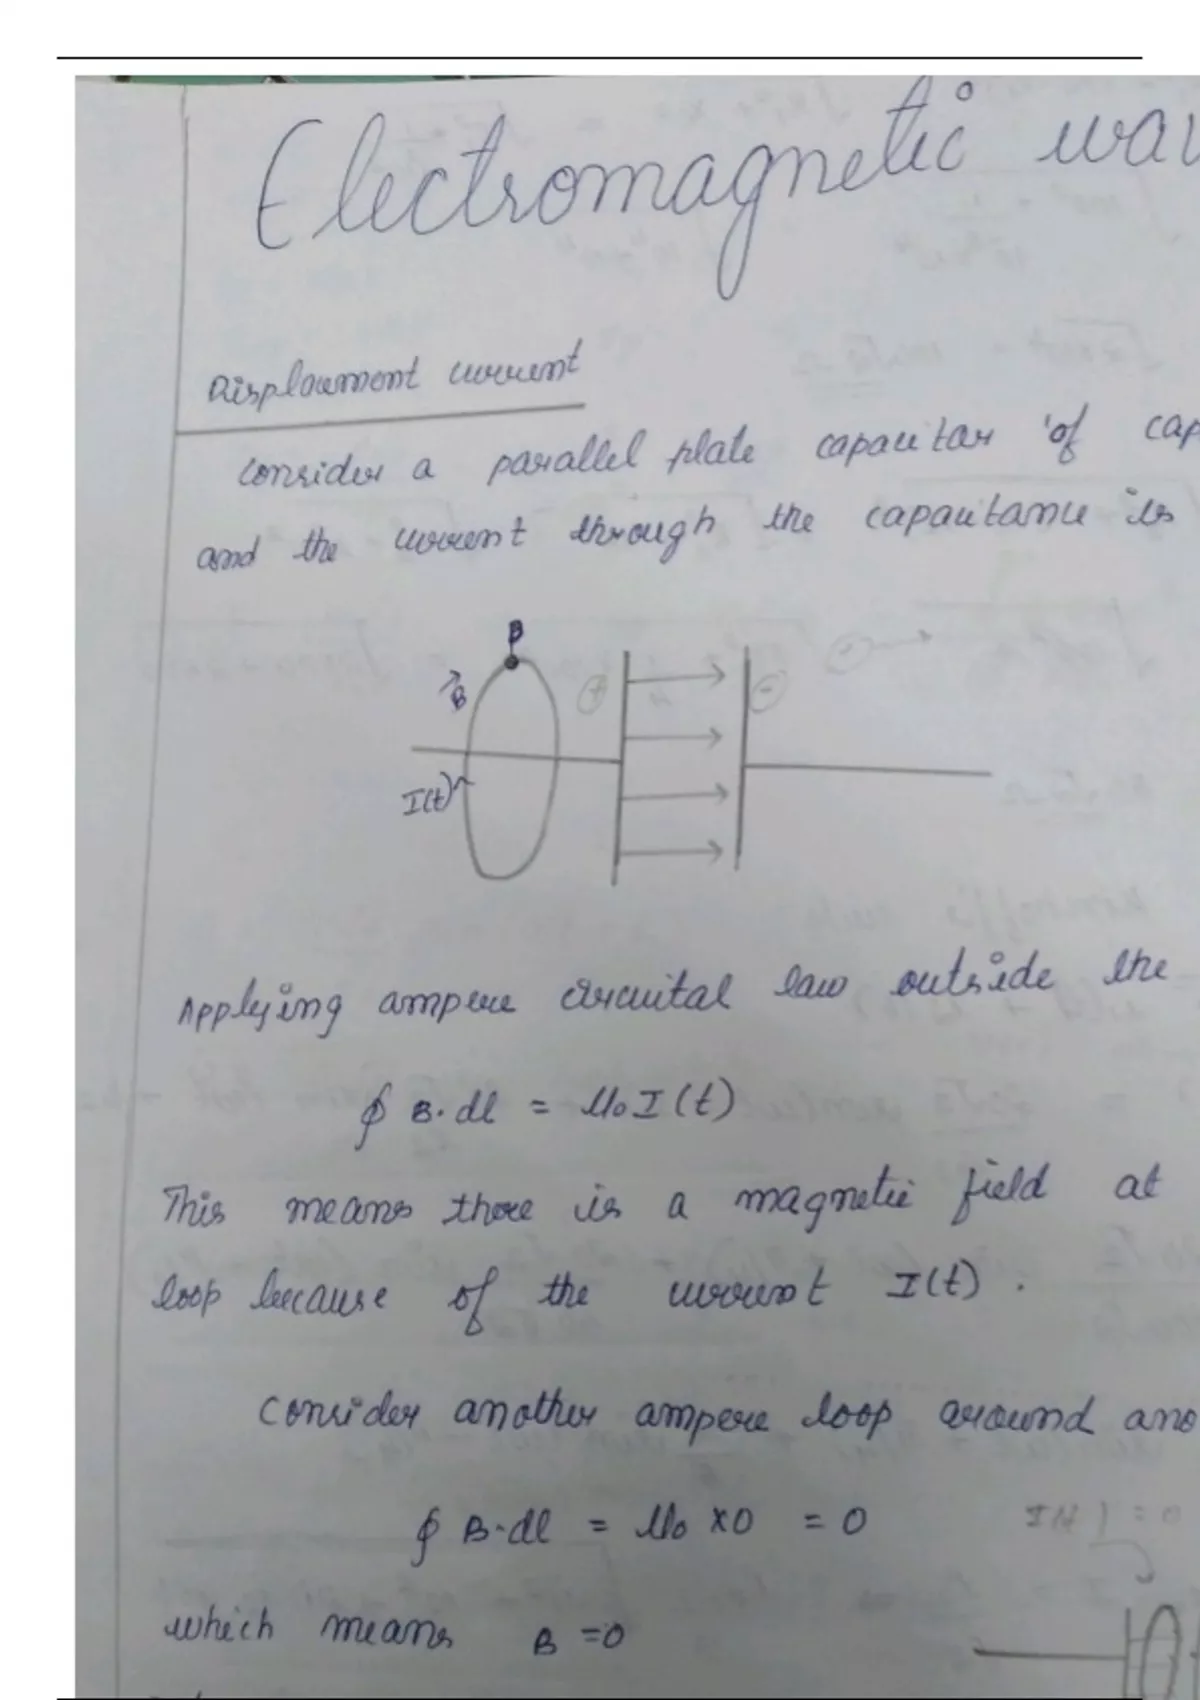 Electromagnetic wav
Displacement current
Consider a parallel plate capacitor of cap
and the current through the capacitance is
B
B
+
-
I(t)
Applying ampere circuital law outside the
∮ B·dl = μ₀I(t)
This means there is a magnetic field at
loop because of the current I(t).
Consider another ampere loop around ano
∮ B·dl = μ₀ × 0 = 0
which means B = 0